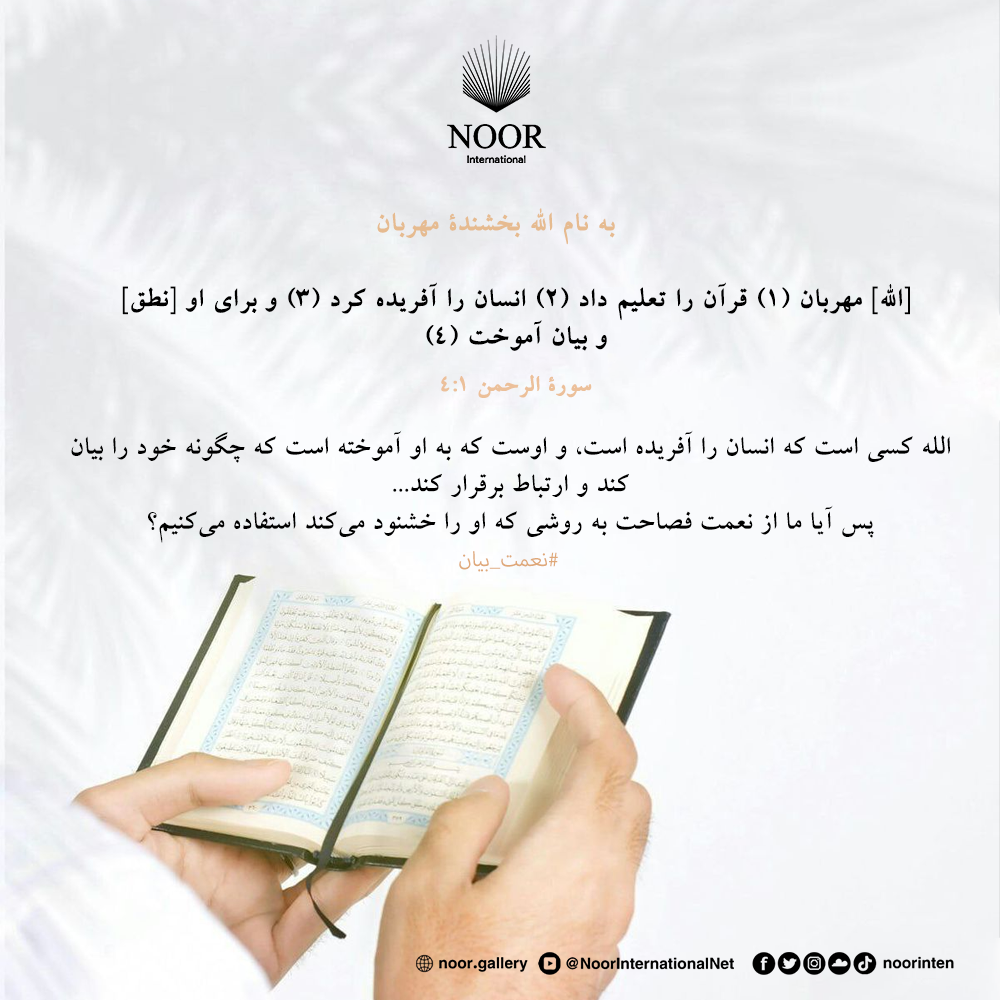 NOOR
International
به نام الله بخشندۀ مهربان
[الله] مهربان (۱) قرآن را تعلیم داد (۲) انسان را آفریده کرد (۳) و برای او [نطق]
و بیان آموخت (٤)
سورۀ الرحمن ٤:۱
الله کسی است که انسان را آفریده است، و اوست که به او آموخته است که چگونه خود را بیان
کند و ارتباط برقرار کند...
پس آیا ما از نعمت فصاحت به روشی که او را خشنود می‌کند استفاده می‌کنیم؟
#نعمت_بیان
noor.gallery @NoorInternationalNet noorinten